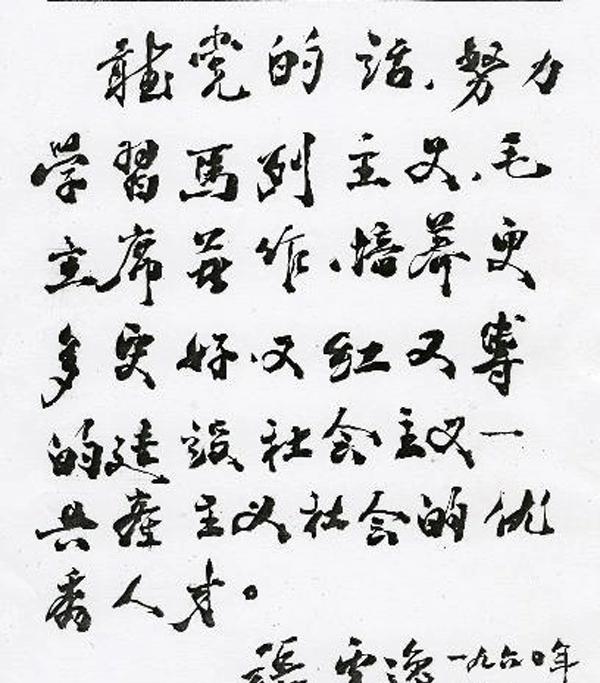 聽党的话，努力
学習馬列主义、毛
主席著作，培养更
多更好、又红又專
的建設社会主义一
共產主义社会的优
秀人才。
張雲逸一九六〇年